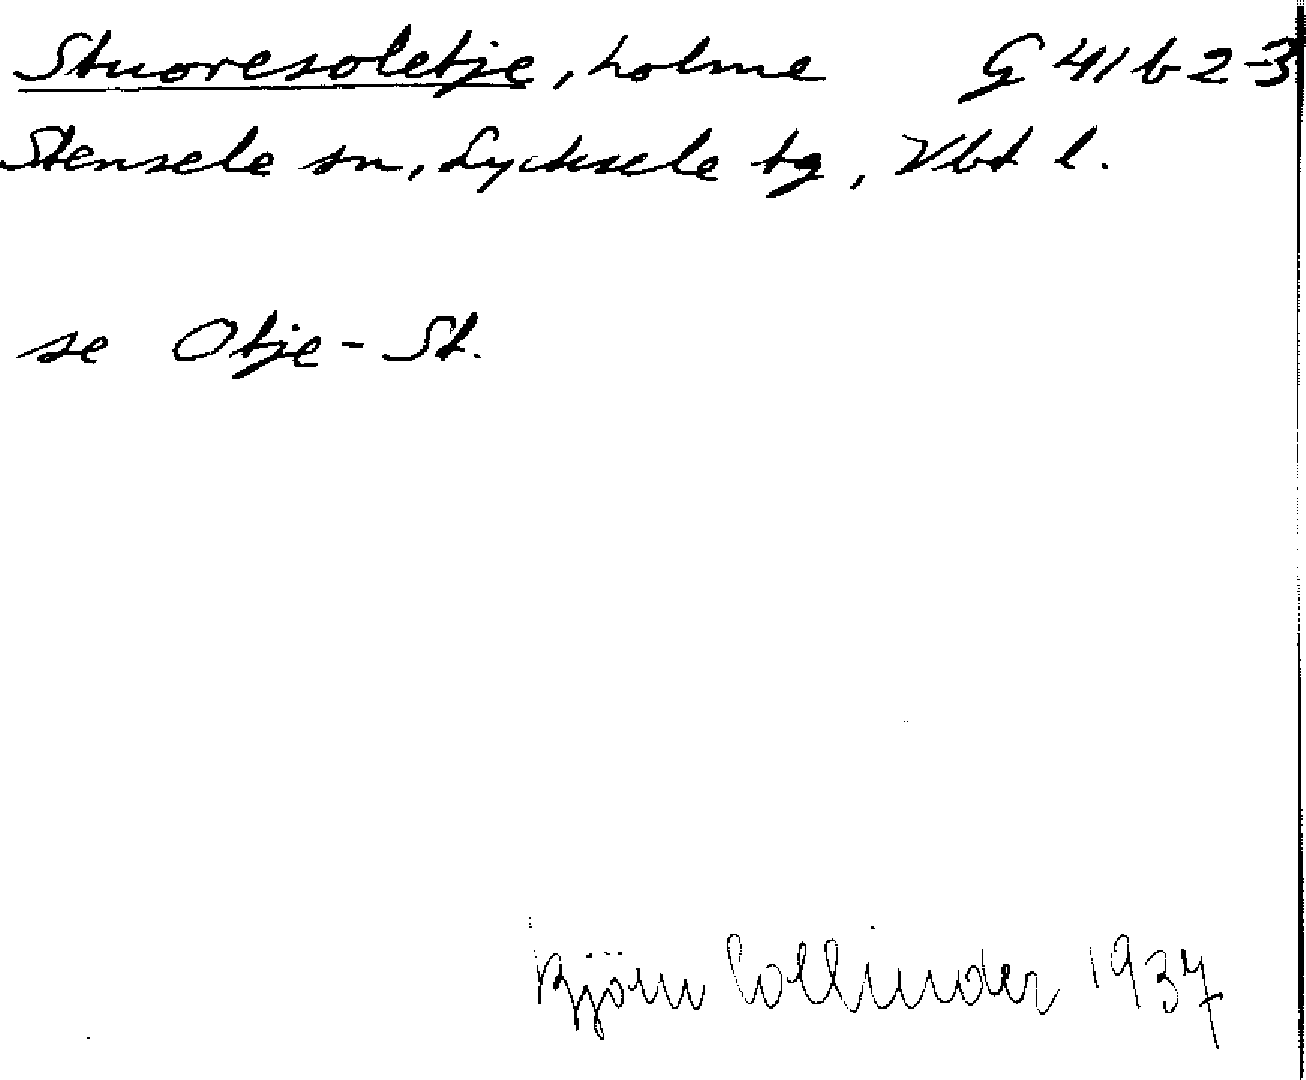 Stuoresoletje, holme G 41 b 2-3
Stensele sn, Lycksele tg, Vbt l.
se Otje-St.
Björn Collinder 1937